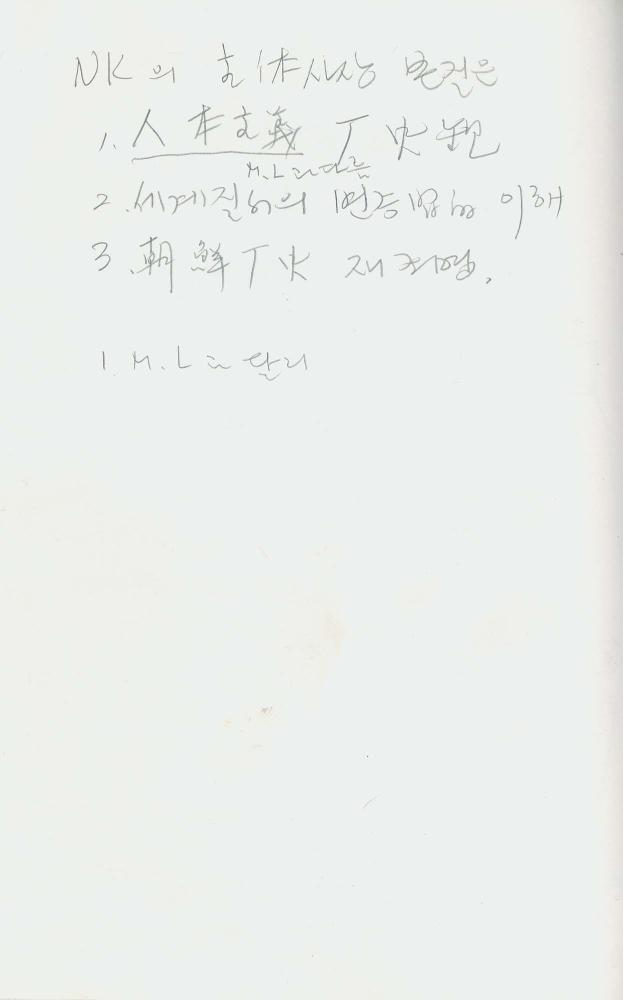 NK의 主体사상 본질은
1. 人本主義 丁史觀
M.L과 다름
2. 세계질서의 변증법的 이해
3. 朝鮮丁史 재해명.
1. M.L과 달리